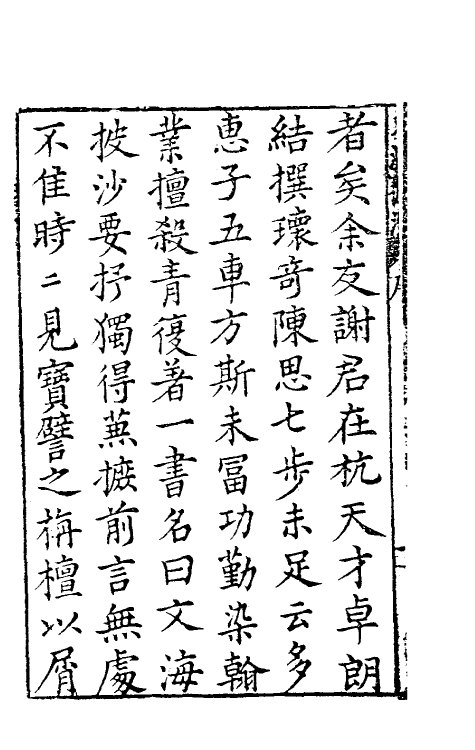 者矣余友謝君在杭天才卓朗
結撰瓌竒陳思七步未足云多
惠子五車方斯未冨功勤染翰
業擅殺青復著一書名曰文海
披沙要抒獨得蕪摭前言無處
不隹時〻見寳譬之栴檀以屑